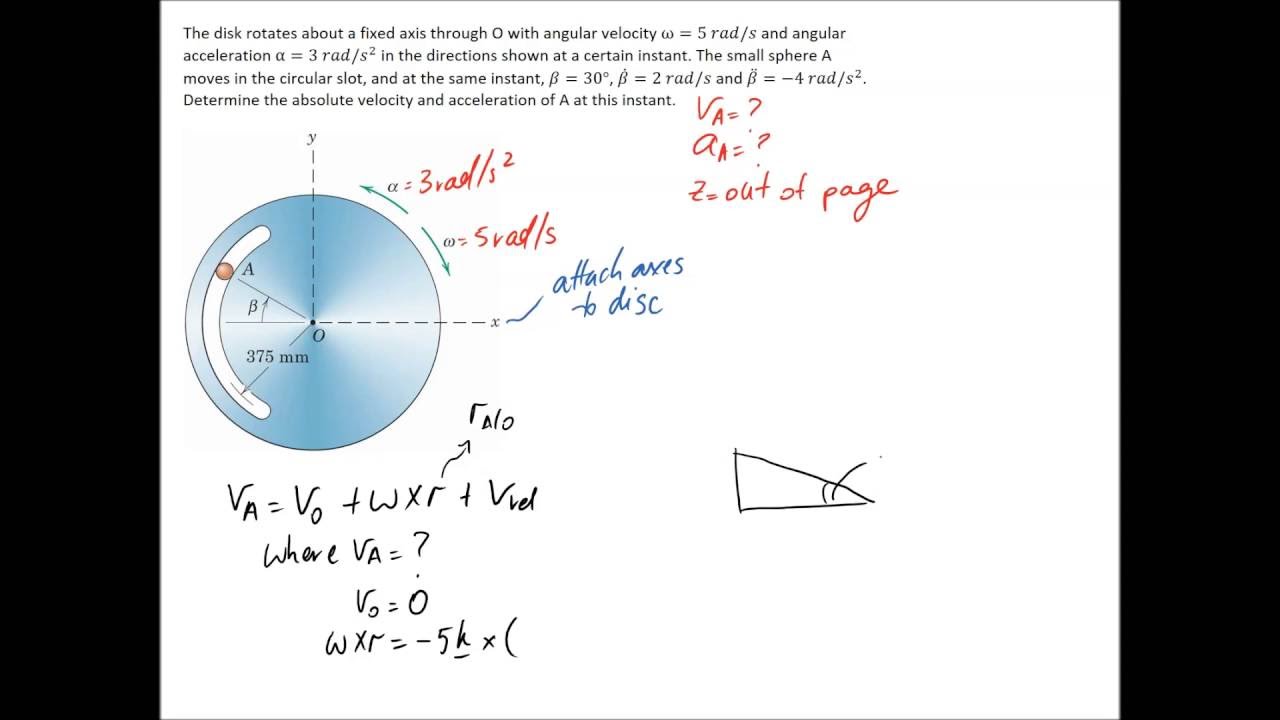 The disk rotates about a fixed axis through O with angular velocity ω = 5 rad/s and angular
acceleration α = 3 rad/s² in the directions shown at a certain instant. The small sphere A
moves in the circular slot, and at the same instant, β = 30°, β̇ = 2 rad/s and β̈ = −4 rad/s².
Determine the absolute velocity and acceleration of A at this instant.
V_A = ?
a_A = ?
z = out of page
y
α = 3 rad/s²
ω = 5 rad/s
attach axes
to disc
A
β
x
O
375 mm
r_A/O
V_A = V_O + ω × r + V_rel
where V_A = ?
V_O = 0
ω × r = −5k × (